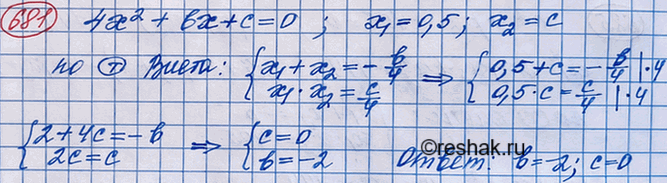 681 4x² + bx + c = 0 ; x₁ = 0,5 ; x₂ = c
по т Виета: { x₁ + x₂ = -b/4 ⇒ { 0,5 + c = -b/4 | ·4
x₁ · x₂ = c/4 0,5 · c = c/4 | ·4
{ 2 + 4c = -b ⇒ { c = 0
2c = c b = -2 Ответ: b = -2; c = 0
©reshak.ru